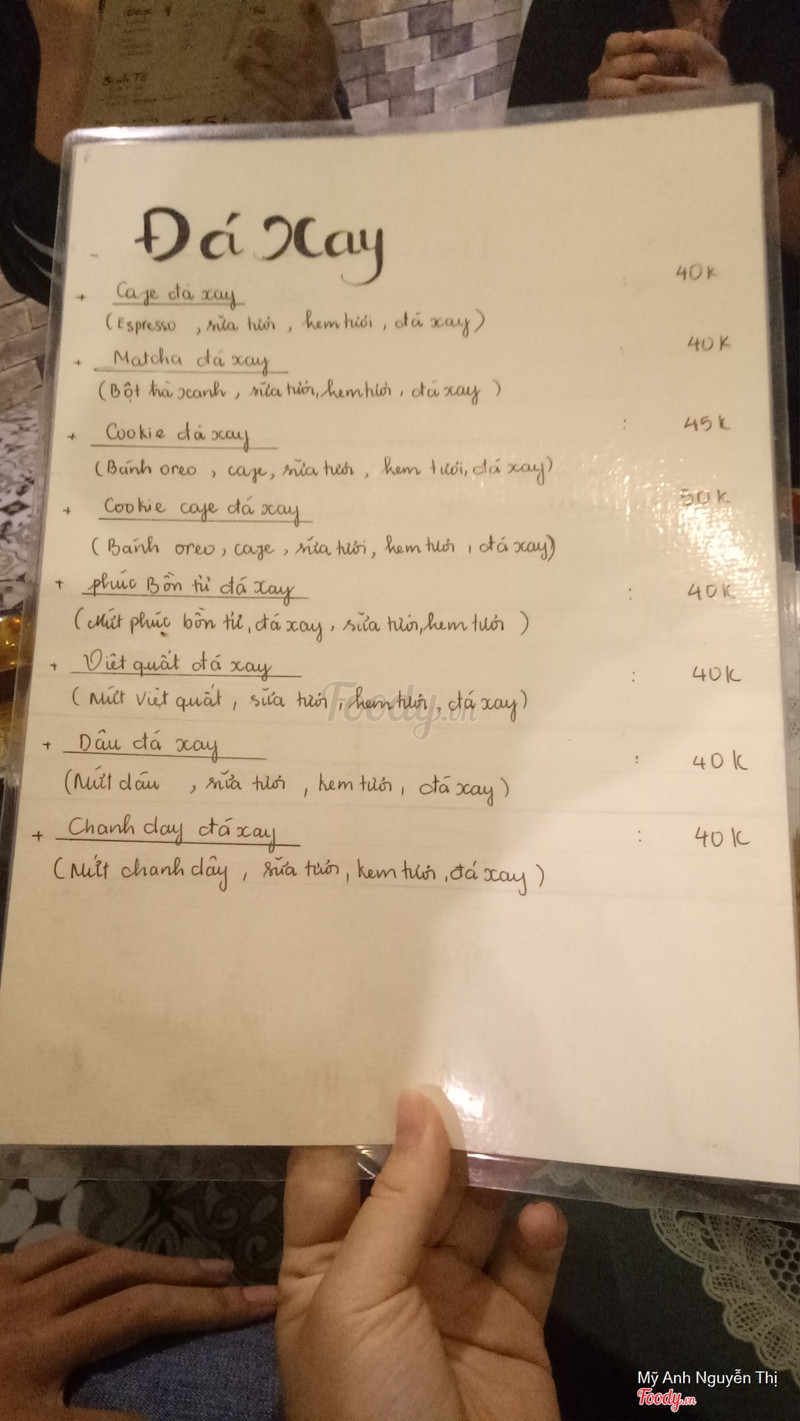 Sinh Tố
Đá Xay
+ Cafe đá xay 40K
(Espresso, sữa tươi, kem tươi, đá xay)
+ Matcha đá xay 40K
(Bột trà xanh, sữa tươi, kem tươi, đá xay)
+ Cookie đá xay : 45K
(Bánh oreo, cafe, sữa tươi, kem tươi, đá xay)
+ Cookie cafe đá xay 50K
(Bánh oreo, cafe, sữa tươi, kem tươi, đá xay)
+ phúc Bồn tử đá xay : 40K
(Mứt phúc bồn tử, đá xay, sữa tươi, kem tươi)
+ Việt quất đá xay : 40K
(Mứt Việt quất, sữa tươi, kem tươi, đá xay)
Foody.vn
+ Dâu đá xay : 40K
(Mứt dâu, sữa tươi, kem tươi, đá xay)
+ Chanh day đá xay : 40K
(Mứt chanh dây, sữa tươi, kem tươi, đá xay)
Mỹ Anh Nguyễn Thị
Foody.vn